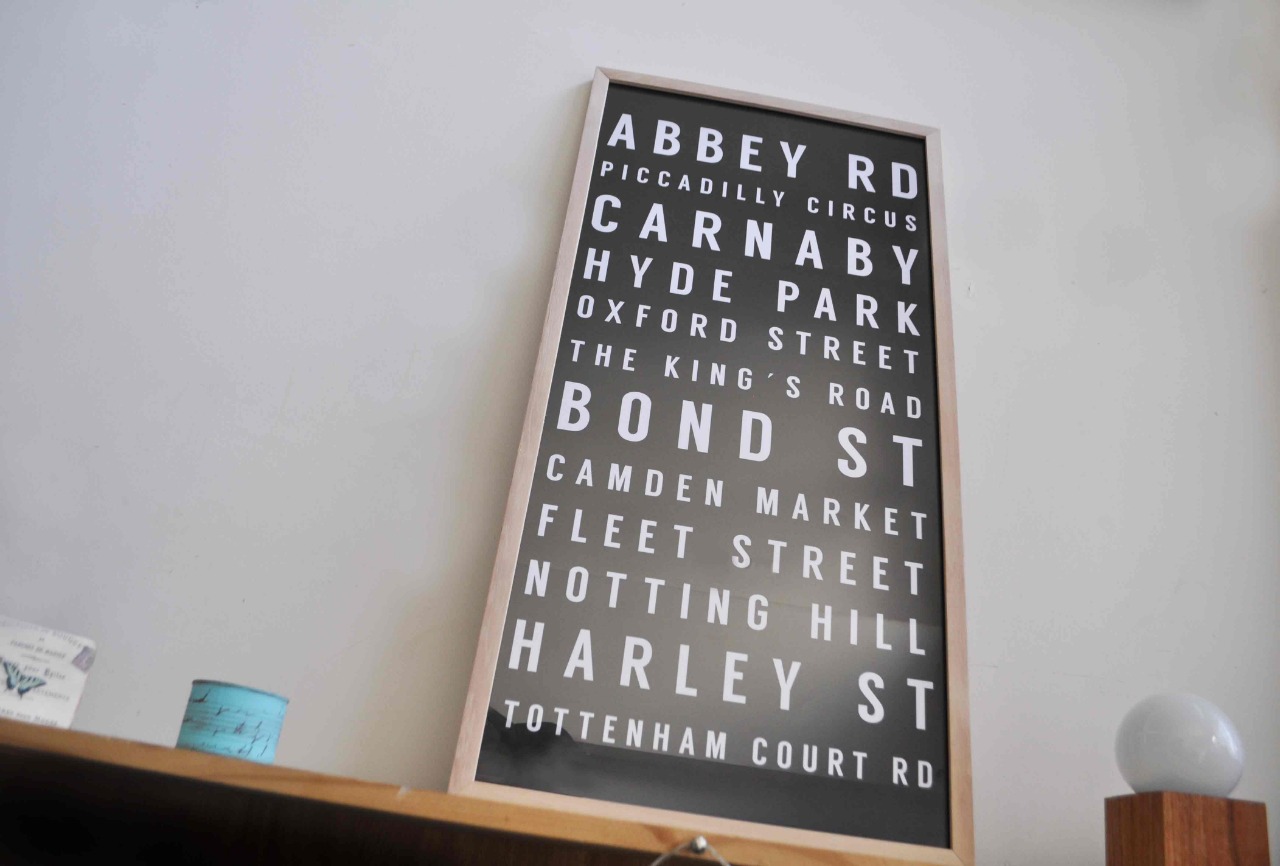 ABBEY RD
PICCADILLY CIRCUS
CARNABY
HYDE PARK
OXFORD STREET
THE KING´S ROAD
BOND ST
CAMDEN MARKET
FLEET STREET
NOTTING HILL
HARLEY ST
TOTTENHAM COURT RD